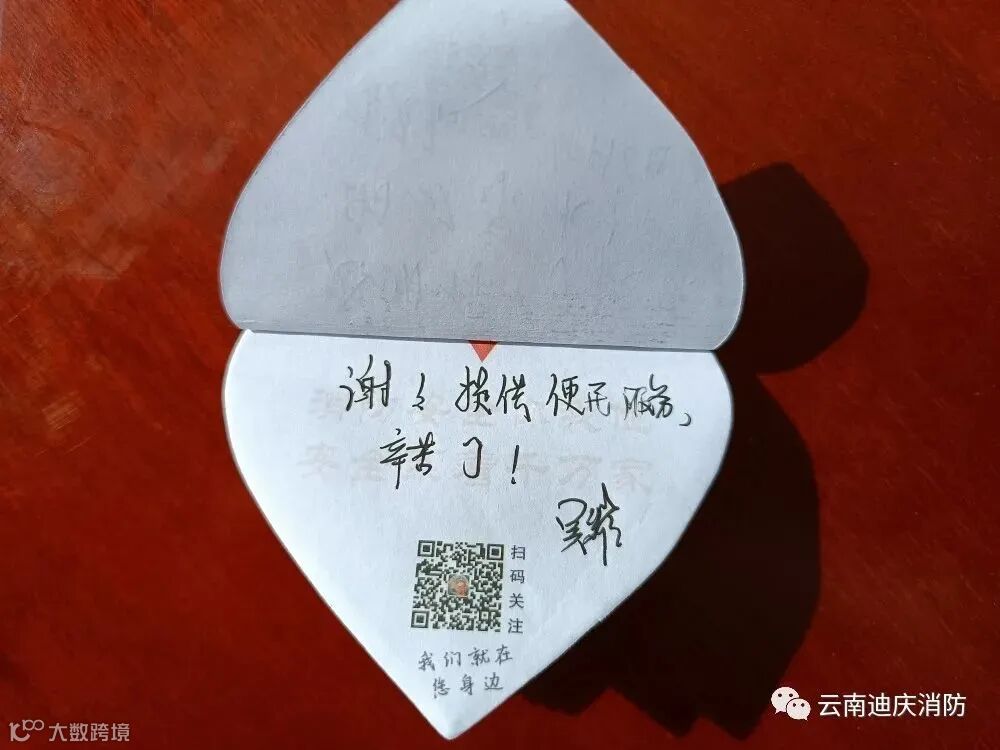 谢々提供便民服务,
辛苦了!
扫码关注
我们就在
您身边
云南迪庆消防
大数跨境